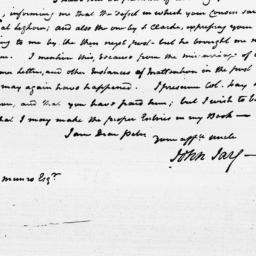 , informing me that the Vessel in which your Cousin sai
at Leghorn; and also the one by S. Clarke, expressing your
ing to me by the then next post - but he brought me n
. I mention this, because from the miscarriage of
Letters, and other Instances of Inattention in the post
may again have happened. I presume Col. Hay
and that you have paid him; but I wish to b
hat I may make the proper Entries in my Book —
I am Dear Peter
Your affte. uncle
John Jay —
Munro Esqr.